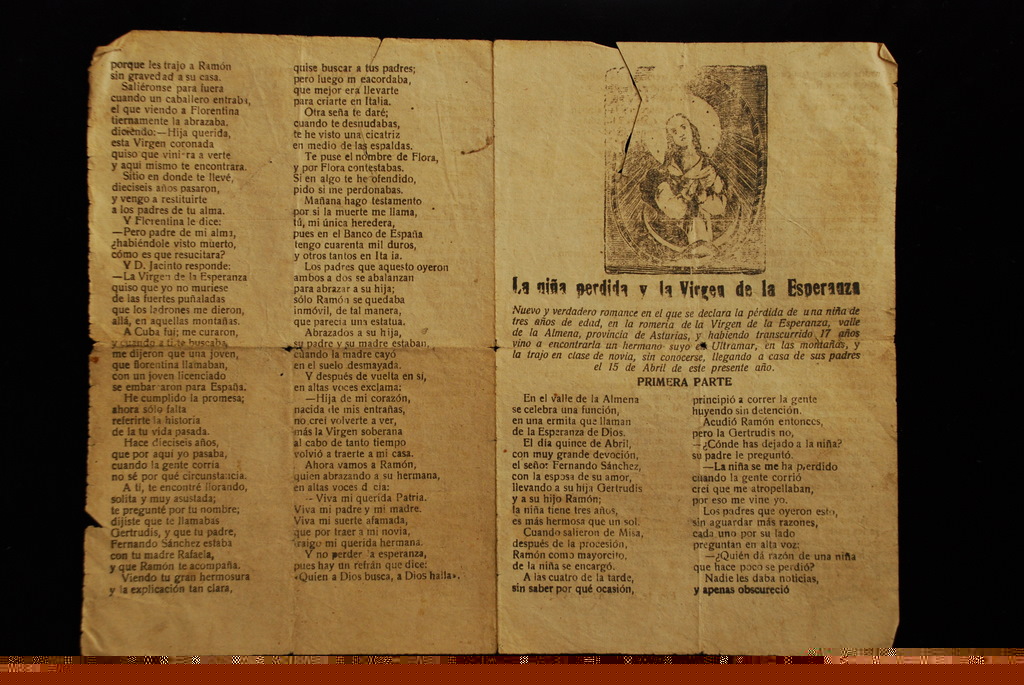 porque les trajo a Ramón
sin gravedad a su casa.
Saliéronse para fuera
cuando un caballero entraba,
el que viendo a Florentina
tiernamente la abrazaba.
diciendo:—Hija querida,
esta Virgen coronada
quiso que vini ra a verte
y aquí mismo te encontrara.
Sitio en donde te llevé,
dieciseis años pasaron,
y vengo a restituirte
a los padres de tu alma.
Y Florentina le dice:
—Pero padre de mi alma,
¿habiéndole visto muerto,
cómo es que resucitara?
Y D. Jacinto responde:
—La Virgen de la Esperanza
quiso que yo no muriese
de las fuertes puñaladas
que los ladrones me dieron,
allá, en aquellas montañas.
A Cuba fuí; me curaron,
y cuando a tí te buscaba,
me dijeron que una joven,
que florentina llamaban,
con un joven licenciado
se embar aron para España.
He cumplido la promesa;
ahora sólo falta
referirte la historia
de la tu vida pasada.
Hace dieciseis años,
que por aquí yo pasaba,
cuando la gente corría
no sé por qué circunstancia.
A tí, te encontré llorando,
solita y muy asustada;
te pregunté por tu nombre;
dijiste que te llamabas
Gertrudis, y que tu padre,
Fernando Sánchez estaba
con tu madre Rafaela,
y que Ramón te acompaña.
Viendo tu gran hermosura
y la explicación tan clara,
quise buscar a tus padres;
pero luego m eacordaba,
que mejor era llevarte
para criarte en Italia.
Otra seña te daré;
cuando te desnudabas,
te he visto una cicatriz
en medio de las espaldas.
Te puse el nombre de Flora,
y por Flora contestabas.
Si en algo te he ofendido,
pido si me perdonabas.
Mañana hago testamento
por si la muerte me llama,
tú, mi única heredera,
pues en el Banco de España
tengo cuarenta mil duros,
y otros tantos en Ita ia.
Los padres que aquesto oyeron
ambos a dos se abalanzan
para abrazar a su hija;
sólo Ramón se quedaba
inmóvil, de tal manera,
que parecía una estatua.
Abrazados a su hija,
su padre y su madre estaban,
cuando la madre cayó
en el suelo desmayada.
Y después de vuelta en sí,
en altas voces exclama:
—Hija de mi corazón,
nacida de mis entrañas,
no creí volverte a ver,
más la Virgen soberana
al cabo de tanto tiempo
volvió a traerte a mi casa.
Ahora vamos a Ramón,
quien abrazando a su hermana,
en altas voces d cía:
—Viva mi querida Patria.
Viva mi padre y mi madre.
Viva mi suerte afamada,
que por traer a mi novia,
traigo mi querida hermana.
Y no perder la esperanza,
pues hay un refrán que dice:
«Quien a Dios busca, a Dios halla».
La niña perdida y la Virgen de la Esperanza
Nuevo y verdadero romance en el que se declara la pérdida de una niña de
tres años de edad, en la romería de la Virgen de la Esperanza, valle
de la Almena, provincia de Asturias, y habiendo transcurrido 17 años
vino a encontrarla un hermano suyo en Ultramar, en las montañas, y
la trajo en clase de novia, sin conocerse, llegando a casa de sus padres
el 15 de Abril de este presente año.
PRIMERA PARTE
En el Valle de la Almena
se celebra una función,
en una ermita que llaman
de la Esperanza de Dios.
El día quince de Abril,
con muy grande devoción,
el señor Fernando Sánchez,
con la esposa de su amor,
llevando a su hija Gertrudis
y a su hijo Ramón;
la niña tiene tres años,
es más hermosa que un sol.
Cuando salieron de Misa,
después de la procesión,
Ramón como mayorcito,
de la niña se encargó.
A las cuatro de la tarde,
sin saber por qué ocasión,
principió a correr la gente
huyendo sin detención.
Acudió Ramón entonces,
pero la Gertrudis no,
—¿Cónde has dejado a la niña?
su padre le preguntó.
—La niña se me ha pierdido
cuando la gente corrió
creí que me atropellaban,
por eso me vine yo.
Los padres que oyeron esto,
sin aguardar más razones,
cada uno por su lado
preguntan en alta voz:
—¿Quién dá razón de una niña
que hace poco se perdió?
Nadie les daba noticias,
y apenas obscureció